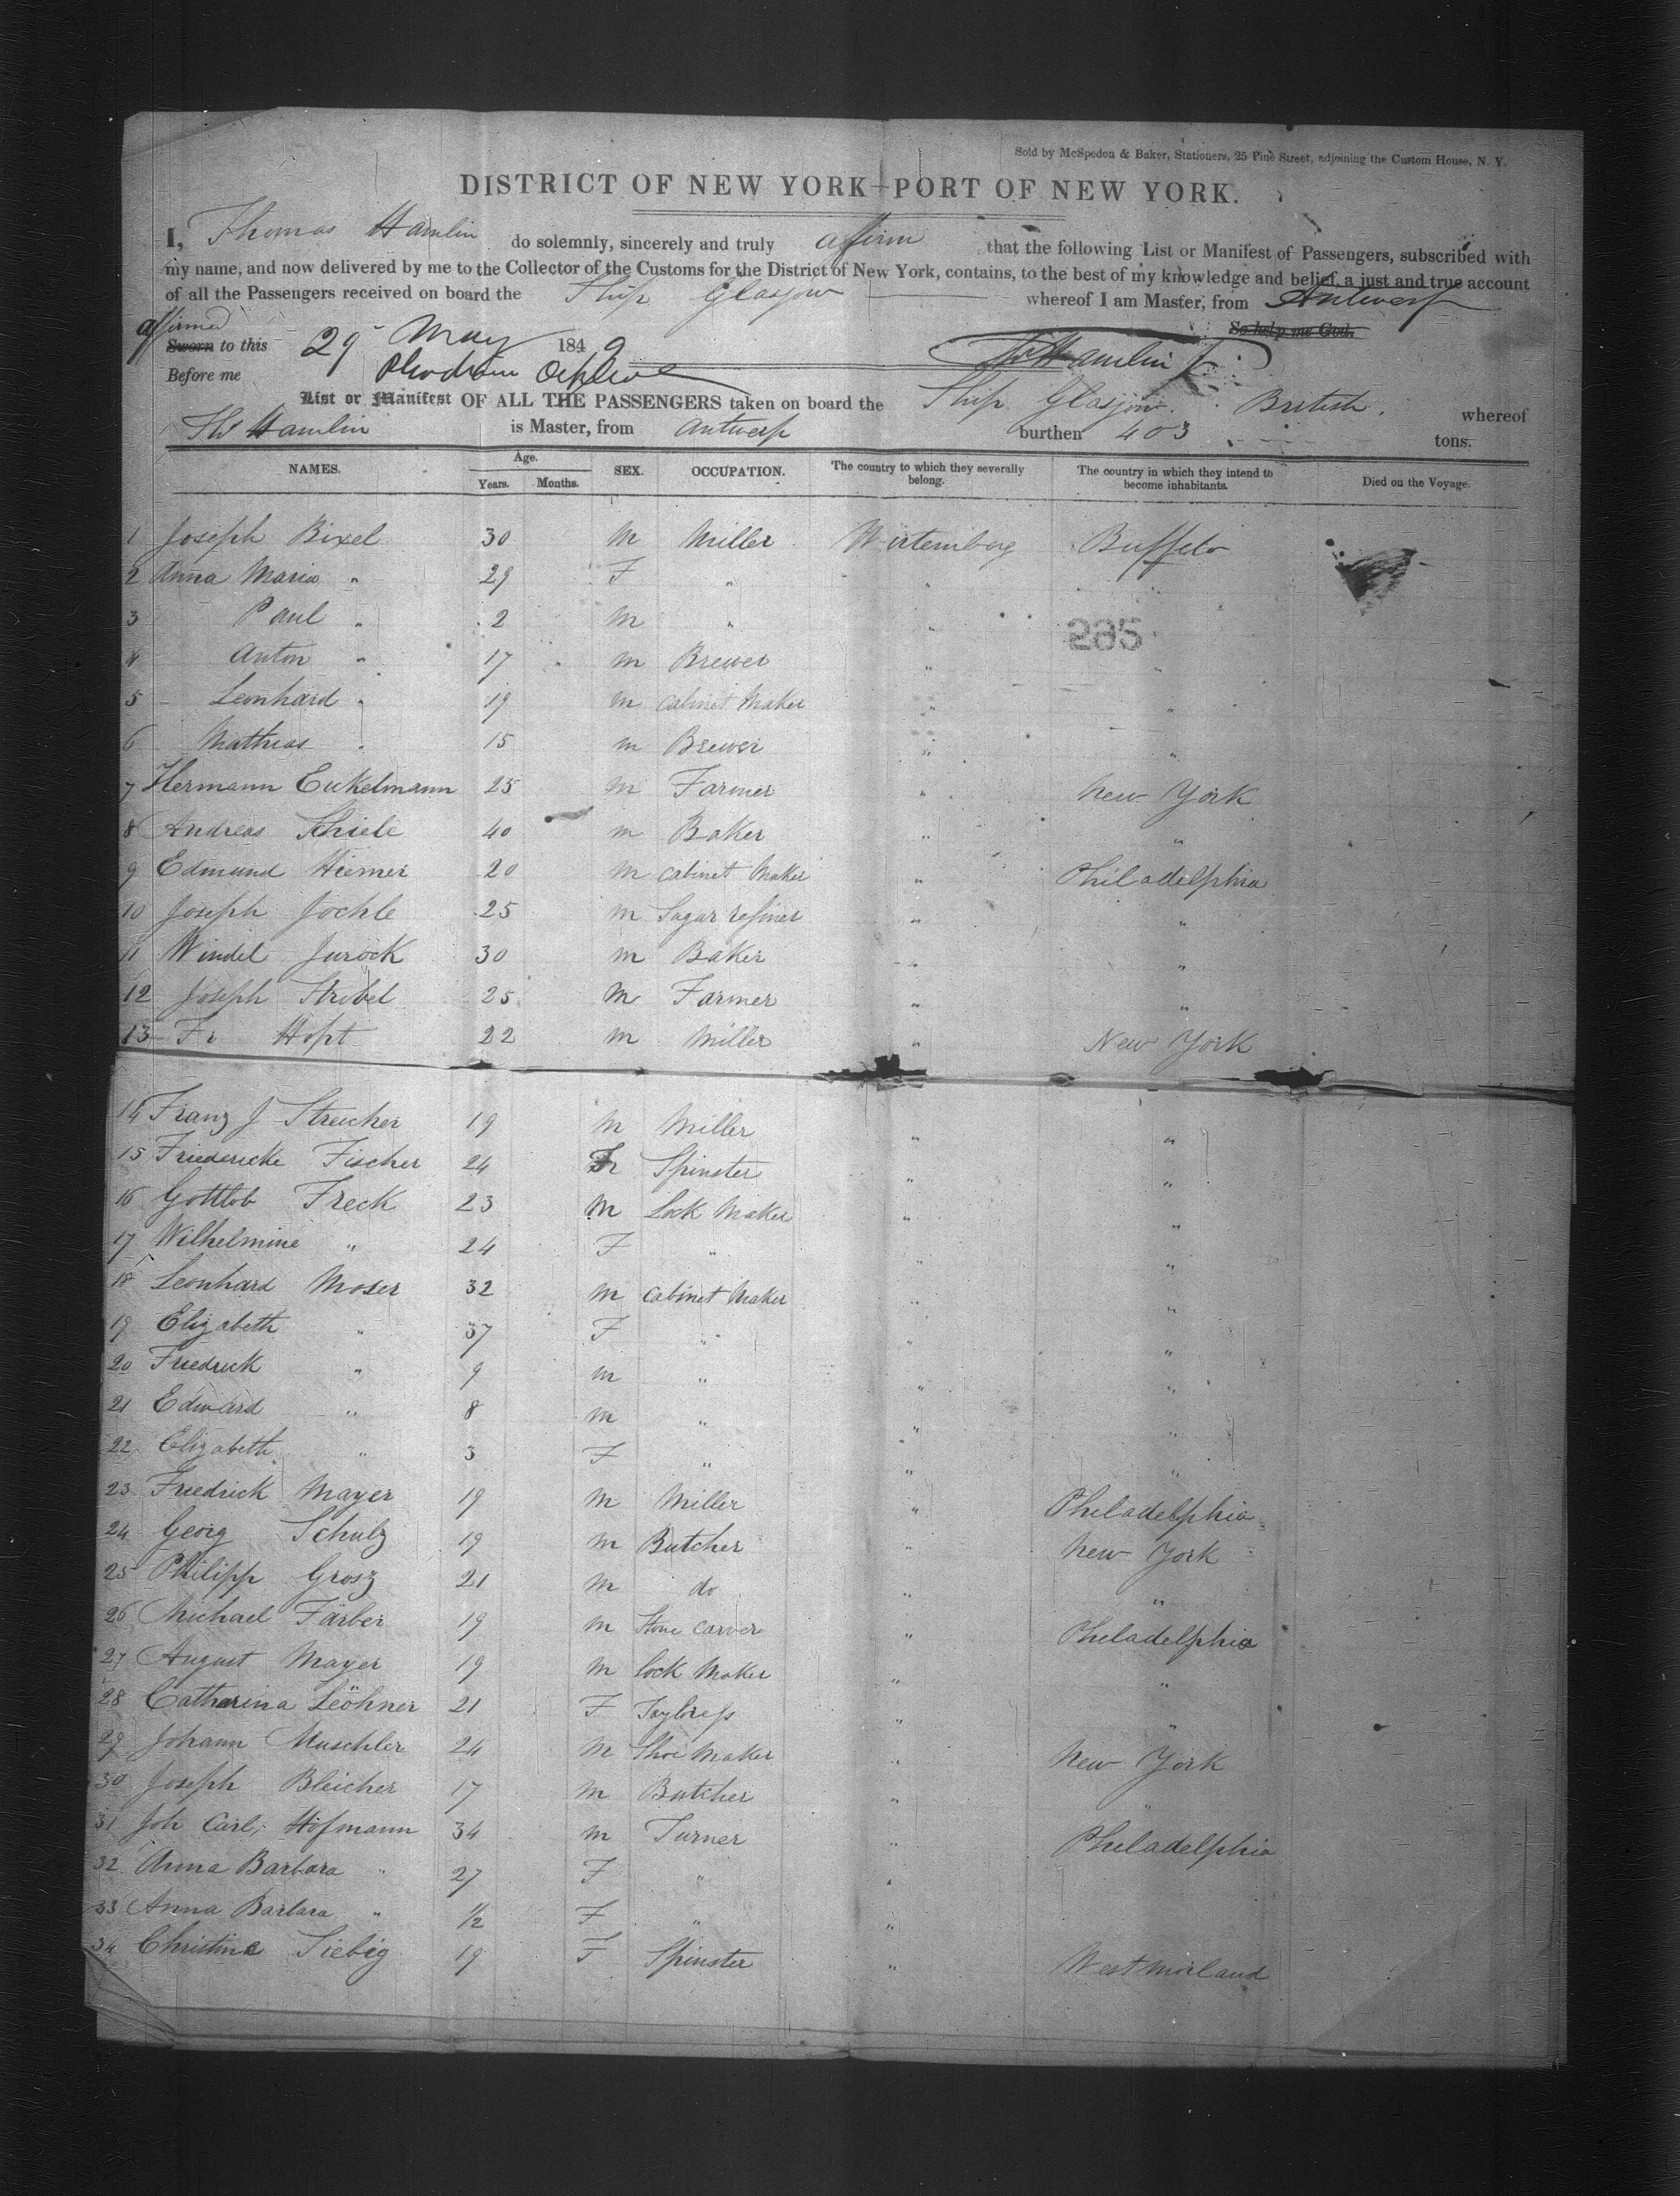 Sold by McSpedon & Baker, Stationers, 25 Pine Street, adjoining the Custom House, N. Y.
DISTRICT OF NEW YORK—PORT OF NEW YORK.
I, Thomas Hamlin do solemnly, sincerely and truly affirm that the following List or Manifest of Passengers, subscribed with
my name, and now delivered by me to the Collector of the Customs for the District of New York, contains, to the best of my knowledge and belief, a just and true account
of all the Passengers received on board the Ship Glasgow whereof I am Master, from Antwerp
So help me God.
affirmed
Sworn to this 29 May 1849 Th Hamlin
Before me
List or Manifest OF ALL THE PASSENGERS taken on board the Ship Glasgow British whereof
Th Hamlin is Master, from Antwerp burthen 403 tons.
NAMES. Age. Years. Months. SEX. OCCUPATION. The country to which they severally belong. The country in which they intend to become inhabitants. Died on the Voyage.
1 Joseph Bixel 30 M Miller Wirtemberg Buffelo
2 Anna Maria " 29 F " " "
3 Paul " 2 M " "
285
4 Anton " 17 m Brewer " "
5 Leonhard " 19 m Cabinet Maker " "
6 Mathias " 15 m Brewer " "
7 Hermann Eickelmann 25 m Farmer " New York
8 Andreas Schiele 40 m Baker " "
9 Edmund Hiemer 20 M Cabinet Maker " Philadelphia
10 Joseph Jochle 25 M Sugar refiner " "
11 Windel Jurock 30 M Baker " "
12 Joseph Strobel 25 M Farmer " "
13 Fr Hopt 22 M Miller " New York
14 Franz J Streicher 19 M Miller " "
15 Friedericke Fischer 24 F Spinster " "
16 Gottlob Freck 23 M Lock Maker " "
17 Wilhelmine " 24 F " " "
18 Leonhard Moser 32 M Cabinet Maker " "
19 Elizabeth " 37 F " " "
20 Friedrick " 9 m " " "
21 Edward " 8 m " " "
22 Elizabeth " 3 F " " "
23 Friedrick Mayer 19 M Miller " Philadelphia
24 Georg Schulz 19 M Butcher " New York
25 Philipp Grosz 21 M do " "
26 Michael Färber 19 M Stone Carver " Philadelphia
27 August Mayer 19 M Lock Maker " "
28 Catharina Leöhner 21 F Tayloress " "
29 Johann Muschler 24 M Shoe Maker " New York
30 Joseph Bleicher 17 M Butcher " "
31 Joh Carl Hofmann 34 m Turner " Philadelphia
32 Anna Barbara " 27 F " "
33 Anna Barbara " 1/2 F " "
34 Christine Siebig 19 F Spinster " Westmorland